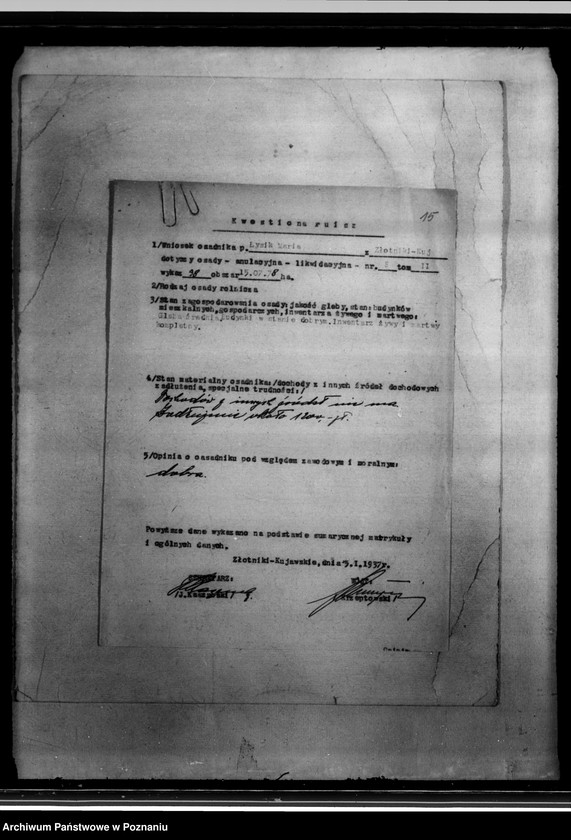 15
Kwestionariusz
1/Wniosek osadnika p. Łyzik Maria z Złotniki-Kuj
dotyczy osady - anulacyjna - likwidacyjna - nr. tom II
wykaz 38 obszar 15.07.78 ha.
2/Rodzaj osady rolnicza
3/Stan zagospodarowania osady: jakość gleby, stan: budynków
mieszkalnych, gospodarczych, inwentarza żywego i martwego:
Gleba średnia, budynki w stanie dobrym. Inwentarz żywy i martwy
komplatny.
4/Stan materialny osadnika:/dochody z innych źródeł dochodowych
zadłużenia, specjalne trudności:/
Dochodów z innych źródeł nie ma
około 1200,- zł.
5/Opinia o osadniku pod względem zawodowym i moralnym:
dobra.
Powyższe dane wykazano na podstawie sumarycznej matrykuły
i ogólnych danych.
Złotniki-Kujawskie, dnia 5.I.1937r.
Archiwum Państwowe w Poznaniu